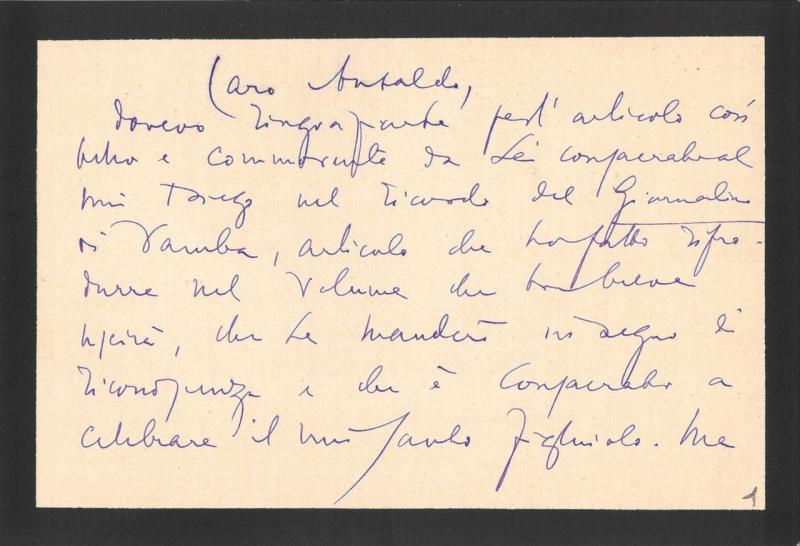 Caro Ansaldo,
dovevo ringraziarla per l'articolo così
bello e commovente da Lei consacrato al
mio nel ricordo del Giornalino
di Vamba, articolo che ho fatto ripro-
durre nel volume che tra breve
uscirà, che Le manderò in segno di
riconoscenza e che è consacrato a
celebrare il mio santo figliuolo. Ma
1